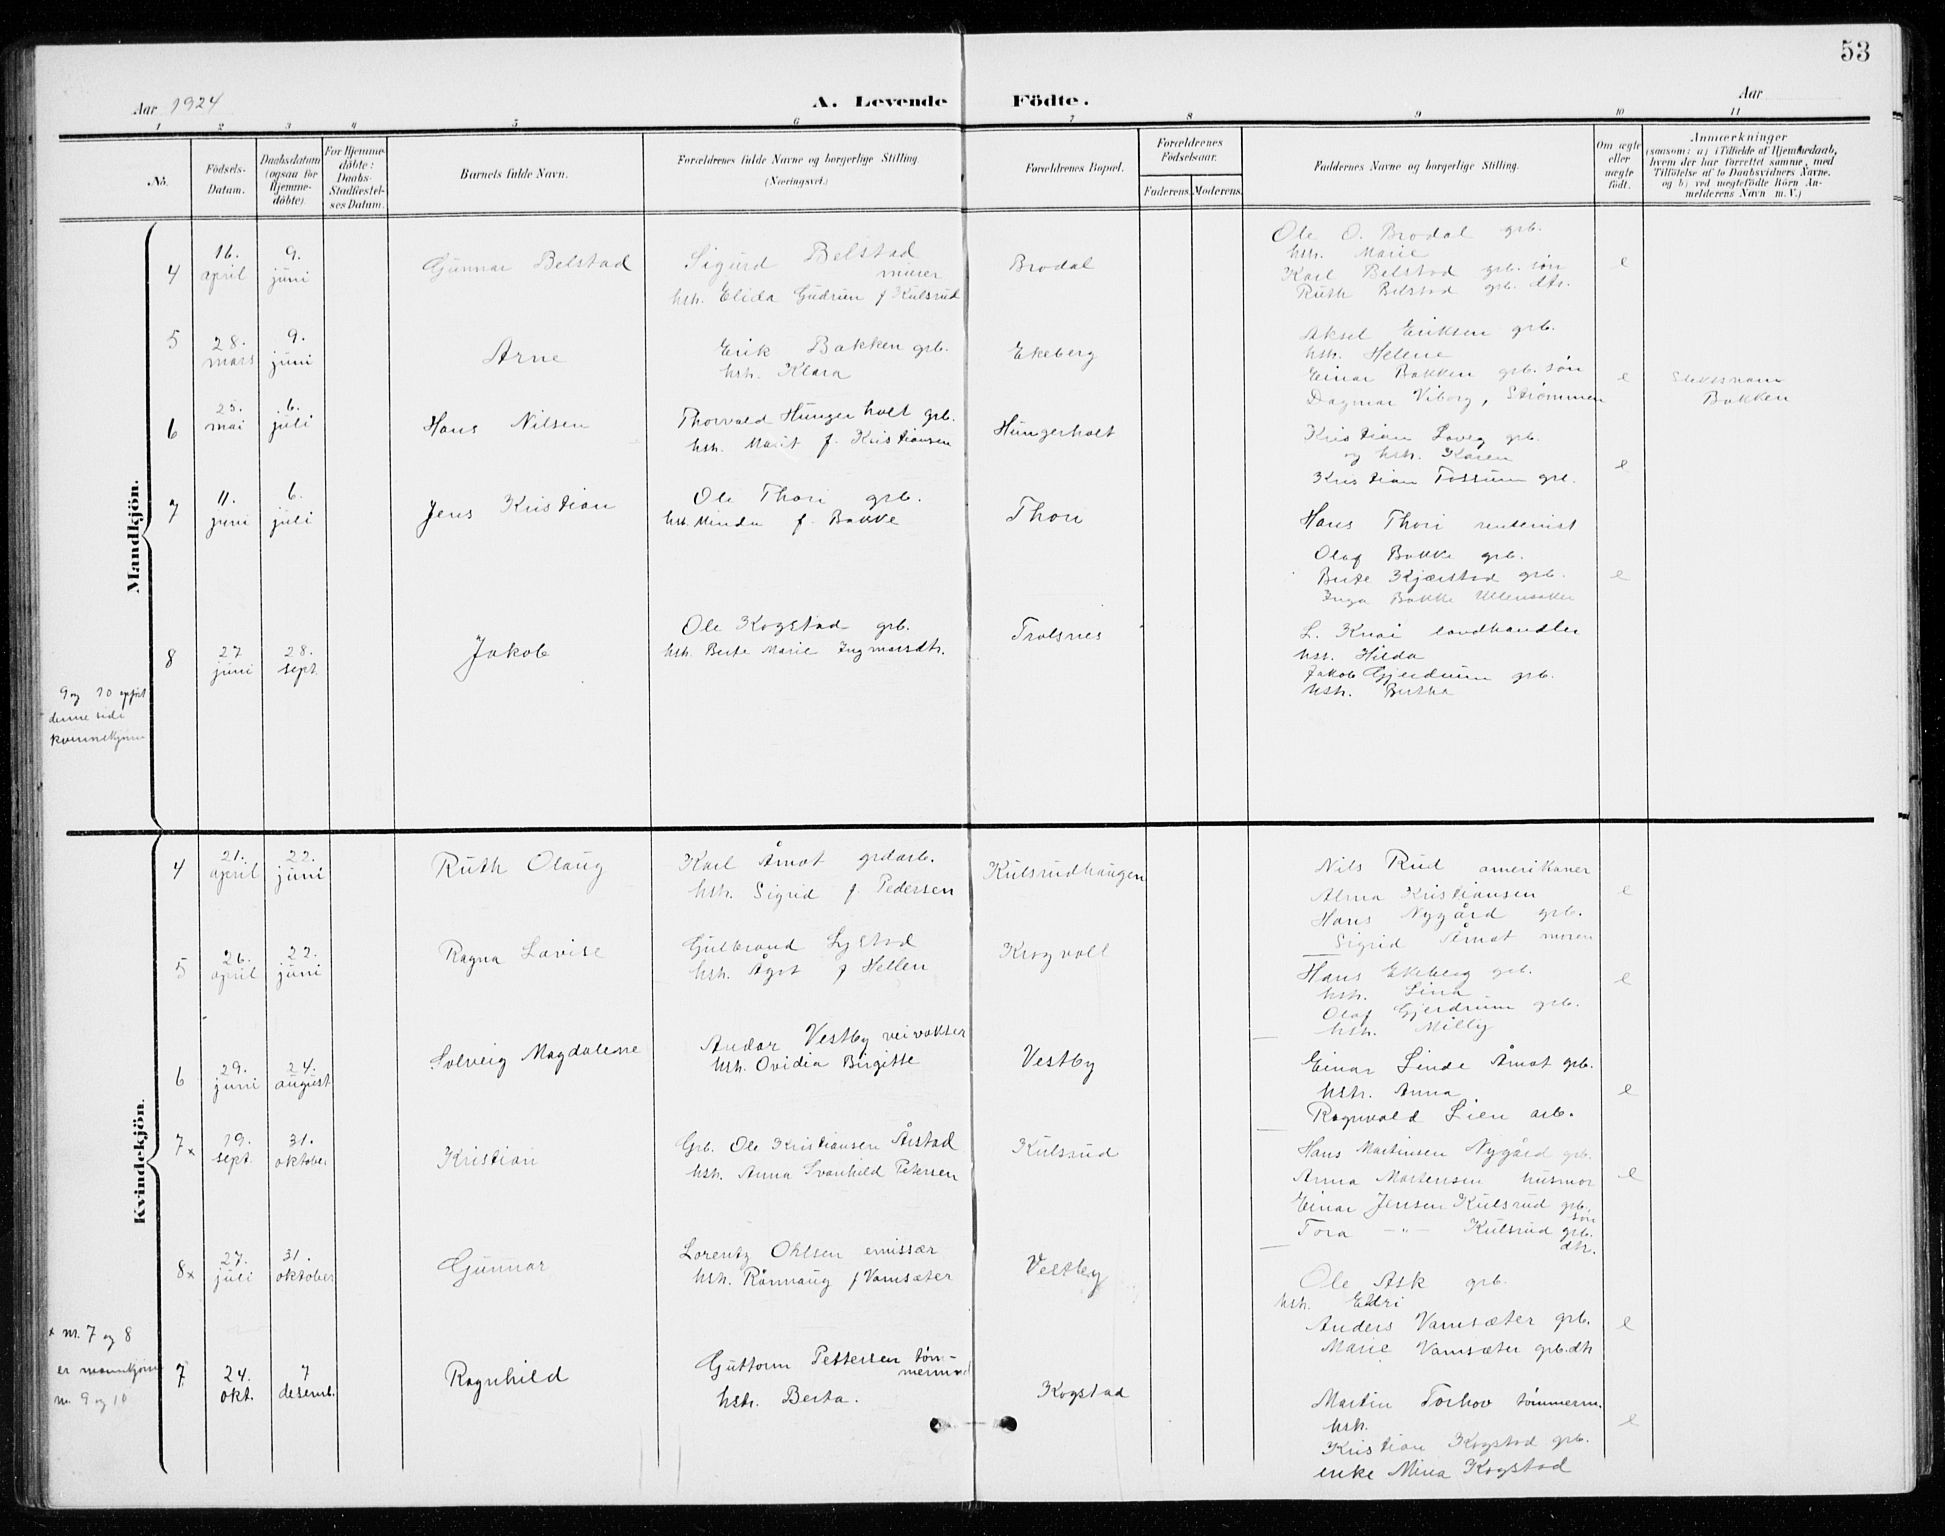 53
Aar 1924
A. Levende Födte.
Aar
1 2 3 4 5 6 7 8 9 10 11
No.
Födsels-Datum.
Daabsdatum (ogsaa for Hjemme-döbte).
For Hjemme-döbte: Daabs-Stadfæstel-ses Datum.
Barnets fulde Navn.
Forældrenes fulde Navne og borgerlige Stilling.
(Næringsvei.)
Forældrenes Bopæl.
Forældrenes Födselsaar.
Faderens. Moderens.
Faddernes Navne og borgerlige Stilling.
Om ægte eller uægte födt.
Anmærkninger
(saasom: a) i Tilfælde af Hjemmedaab,
hvem der har forrettet samme, med
Tilföielse af to Daabsvidners Navne,
og b) ved uægtefödte Börn An-
melderens Navn m. V.)
Mandkjön.
4 16. april 9. juni Gunnar Belstad
Sigurd Belstad
murer
hstr. Elida Gudrun f Kulsrud
Brodal
Ole O. Brodal grb.
hstr. Marie
Karl Belstad grb. søn
Ruth Belstad grb. dtr.
e
5 28. mars 9. juni Arne
Erik Bakken grb.
hstr. Klara
Ekeberg
Aksel Eriksen grb.
hstr. Helene
Einar Bakken grb. søn
Dagmar Viborg, Strømmen
e
Slektsnavn
Bakken
6 25. mai 6. juli Hans Nilsen
Thorvald Hungerholt grb.
hstr. Marit f. Kristiansen
Hungerholt
Kristian Loveg grb.
og hstr. Karen
Kristian Tossum grb.
e
7 11. juni 6. juli Jens Kristian
Ole Thon grb.
hstr. Minda f. Bakke
Thon
Hans Thon rentenist
Olaf Bakke grb.
Berte Kjærstad grb.
Inga Bakke Ullensaker
e
8 27 juni 28. sept. Jakob
Ole Kogstad grb.
hstr. Berte Marie Ingmarsdtr.
Trolsnes
L. Knai landhandler
hstr. Hilda
Jakob Gjerdrum grb.
hstr. Bertha
9 og 10 opført
denne side
kvinnekjønn
Kvindekjön.
4 21. april 22. juni Ruth Olaug
Karl Åmot grdarb.
hstr. Sigrid f Pedersen
Kulsrudhaugen
Nils Rud amerikaner
Alma Kristiansen
Hans Nygård grb.
Sigrid Åmot moren
e
5 26. april 22. juni Ragna Lovise
Gulbrand Lystad
hstr. Ågot f Hellen
Krogvoll
Hans Ekeberg grb.
hstr. Lina
Olaf Gjerdrum grb.
hstr. Milly
e
6 29. juni 24. august Solveig Magdalene
Andor Vestby veivokter
hstr. Ovidia Birgitte
Vestby
Einar Linde Åmot grb.
hstr. Anna
Ragnvald Lien arb.
e
7x 19. sept. 31. oktober Kristian
Grb. Ole Kristiansen Årstad
hstr. Anna Svanhild Petersen
Kulsrud
Hans Martinsen Nygård grb.
Anna Martensen husmor
Einar Jensen Kulsrud grb. søn
Tora —"— Kulsrud grb. dtr.
e
8x 27. juli 31. oktober Gunnar
Lorentz Ohlsen emissær
hstr. Rønnaug f Vamsæter
Vestby
Ole Ask grb.
hstr. Eldri
Anders Vamsæter grb.
Marie Vamsæter grb. dtr
e
7. 24. okt. 7 desemb. Ragnhild
Guttorm Pettersen tøm-
mermand
hstr. Berta.
Kogstad
Martin Torhov tømmerm.
hstr.
Kristian Kogstad grb.
enke Mina Kogstad
e
x nr. 7 og 8
er mannkjønn
nr. 9 og 10